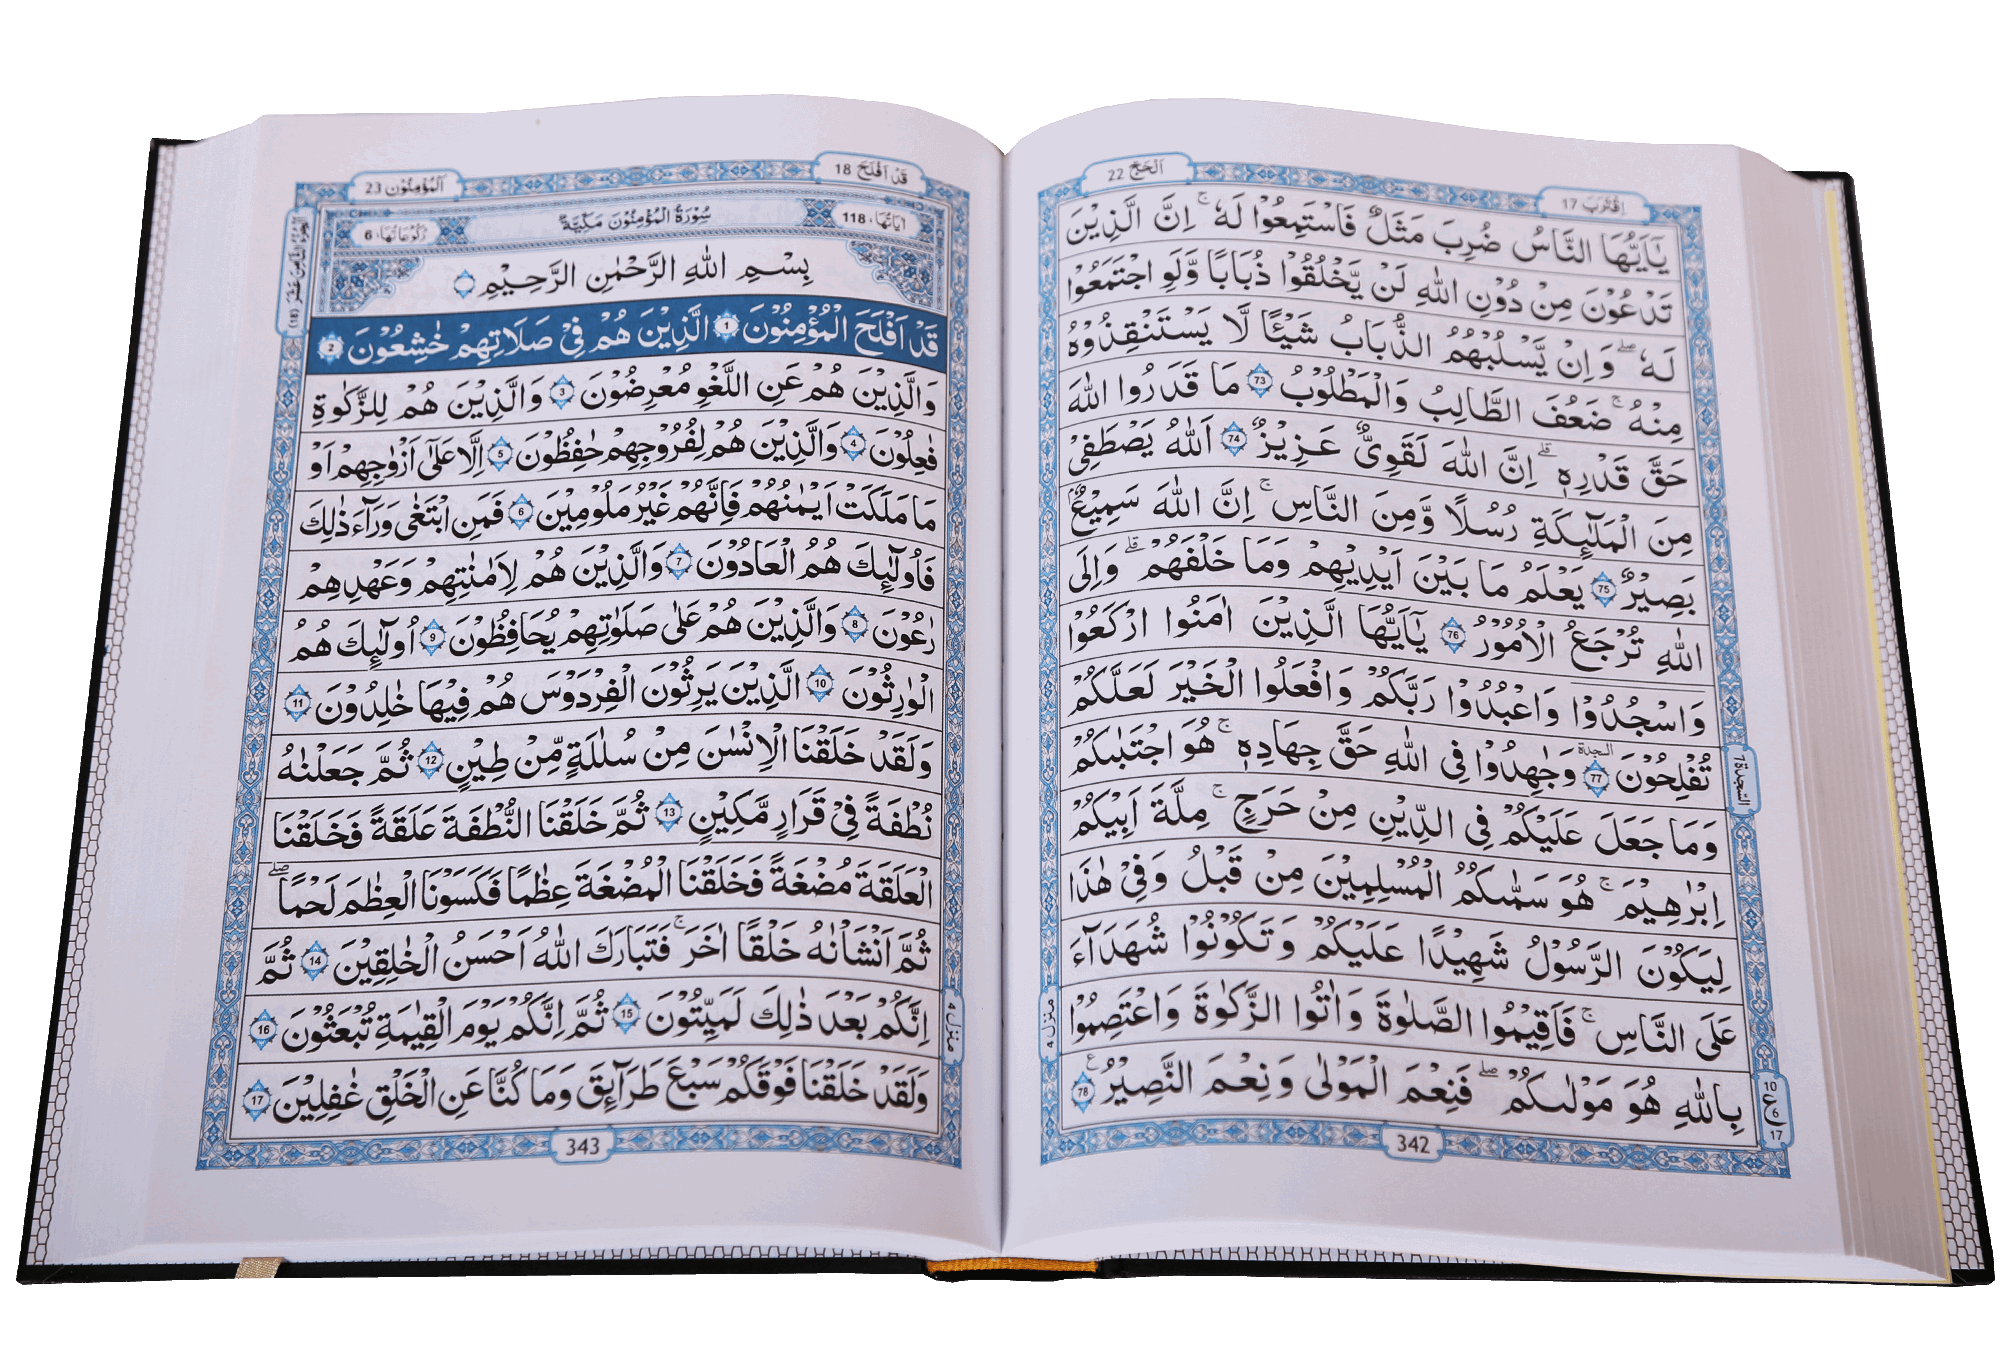 اَلْحَجّ 22
اِقْتَرَبَ 17
يٰۤاَيُّهَا النَّاسُ ضُرِبَ مَثَلٌ فَاسْتَمِعُوْا لَهٗ ۚ اِنَّ الَّذِيْنَ
تَدْعُوْنَ مِنْ دُوْنِ اللّٰهِ لَنْ يَّخْلُقُوْا ذُبَابًا وَّلَوِ اجْتَمَعُوْا
لَهٗ ۖ وَاِنْ يَّسْلُبْهُمُ الذُّبَابُ شَيْـًٔا لَّا يَسْتَنْقِذُوْهُ
مِنْهُ ۚ ضَعُفَ الطَّالِبُ وَالْمَطْلُوْبُ 73 مَا قَدَرُوا اللّٰهَ
حَقَّ قَدْرِهٖ ۗ اِنَّ اللّٰهَ لَقَوِيٌّ عَزِيْزٌ 74 اَللّٰهُ يَصْطَفِيْ
مِنَ الْمَلٰٓئِكَةِ رُسُلًا وَّمِنَ النَّاسِ ۚ اِنَّ اللّٰهَ سَمِيْعٌۢ
بَصِيْرٌ 75 يَعْلَمُ مَا بَيْنَ اَيْدِيْهِمْ وَمَا خَلْفَهُمْ ۗ وَاِلَى
اللّٰهِ تُرْجَعُ الْاُمُوْرُ 76 يٰۤاَيُّهَا الَّذِيْنَ اٰمَنُوا ارْكَعُوْا
وَاسْجُدُوْا وَاعْبُدُوْا رَبَّكُمْ وَافْعَلُوا الْخَيْرَ لَعَلَّكُمْ
تُفْلِحُوْنَ 77 السجدة وَجٰهِدُوْا فِي اللّٰهِ حَقَّ جِهَادِهٖ ۚ هُوَ اجْتَبٰىكُمْ
وَمَا جَعَلَ عَلَيْكُمْ فِي الدِّيْنِ مِنْ حَرَجٍ ۚ مِلَّةَ اَبِيْكُمْ
اِبْرٰهِيْمَ ۚ هُوَ سَمّٰىكُمُ الْمُسْلِمِيْنَ مِنْ قَبْلُ وَفِيْ هٰذَا
لِيَكُوْنَ الرَّسُوْلُ شَهِيْدًا عَلَيْكُمْ وَتَكُوْنُوْا شُهَدَآءَ
عَلَى النَّاسِ ۚ فَاَقِيْمُوا الصَّلٰوةَ وَاٰتُوا الزَّكٰوةَ وَاعْتَصِمُوْا
بِاللّٰهِ هُوَ مَوْلٰىكُمْ ۖ فَنِعْمَ الْمَوْلٰى وَنِعْمَ النَّصِيْرُ 78
السجدة 7
منزل 4
10
ع 6
17
342
اَلْمُؤْمِنُوْن 23
قَدْ اَفْلَحَ 18
اٰيَاتُهَا، 118
سُوْرَةُ الْمُؤْمِنُوْنَ مَكِّيَّةٌ
رُكُوْعَاتُهَا، 6
بِسْمِ اللّٰهِ الرَّحْمٰنِ الرَّحِيْمِ
قَدْ اَفْلَحَ الْمُؤْمِنُوْنَ 1 الَّذِيْنَ هُمْ فِيْ صَلَاتِهِمْ خٰشِعُوْنَ 2
وَالَّذِيْنَ هُمْ عَنِ اللَّغْوِ مُعْرِضُوْنَ 3 وَالَّذِيْنَ هُمْ لِلزَّكٰوةِ
فٰعِلُوْنَ 4 وَالَّذِيْنَ هُمْ لِفُرُوْجِهِمْ حٰفِظُوْنَ 5 اِلَّا عَلٰۤى اَزْوٰجِهِمْ اَوْ
مَا مَلَكَتْ اَيْمٰنُهُمْ فَاِنَّهُمْ غَيْرُ مَلُوْمِيْنَ 6 فَمَنِ ابْتَغٰى وَرَآءَ ذٰلِكَ
فَاُولٰٓئِكَ هُمُ الْعَادُوْنَ 7 وَالَّذِيْنَ هُمْ لِاَمٰنٰتِهِمْ وَعَهْدِهِمْ
رٰعُوْنَ 8 وَالَّذِيْنَ هُمْ عَلٰى صَلَوٰتِهِمْ يُحَافِظُوْنَ 9 اُولٰٓئِكَ هُمُ
الْوٰرِثُوْنَ 10 الَّذِيْنَ يَرِثُوْنَ الْفِرْدَوْسَ هُمْ فِيْهَا خٰلِدُوْنَ 11
وَلَقَدْ خَلَقْنَا الْاِنْسٰنَ مِنْ سُلٰلَةٍ مِّنْ طِيْنٍ 12 ثُمَّ جَعَلْنٰهُ
نُطْفَةً فِيْ قَرَارٍ مَّكِيْنٍ 13 ثُمَّ خَلَقْنَا النُّطْفَةَ عَلَقَةً فَخَلَقْنَا
الْعَلَقَةَ مُضْغَةً فَخَلَقْنَا الْمُضْغَةَ عِظٰمًا فَكَسَوْنَا الْعِظٰمَ لَحْمًا ۖ
ثُمَّ اَنْشَاْنٰهُ خَلْقًا اٰخَرَ ۚ فَتَبَارَكَ اللّٰهُ اَحْسَنُ الْخٰلِقِيْنَ 14 ثُمَّ
اِنَّكُمْ بَعْدَ ذٰلِكَ لَمَيِّتُوْنَ 15 ثُمَّ اِنَّكُمْ يَوْمَ الْقِيٰمَةِ تُبْعَثُوْنَ 16
وَلَقَدْ خَلَقْنَا فَوْقَكُمْ سَبْعَ طَرَآئِقَ وَمَا كُنَّا عَنِ الْخَلْقِ غٰفِلِيْنَ 17
الجزء الثامن عشر (18)
منزل 4
343